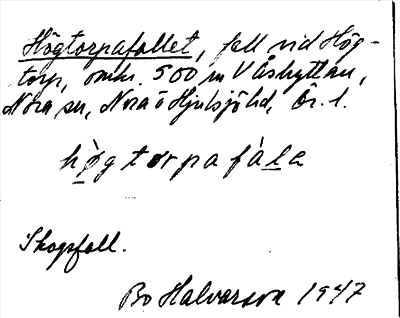 Högtorpafallet, fall vid Hög-
torp, omkr. 500 m V Åshyttan,
Nora sn, Nora o Hjulsjö hd, Ör. l.
hògtorpafàla
Skogsfall.
Bo Halvarson 1947